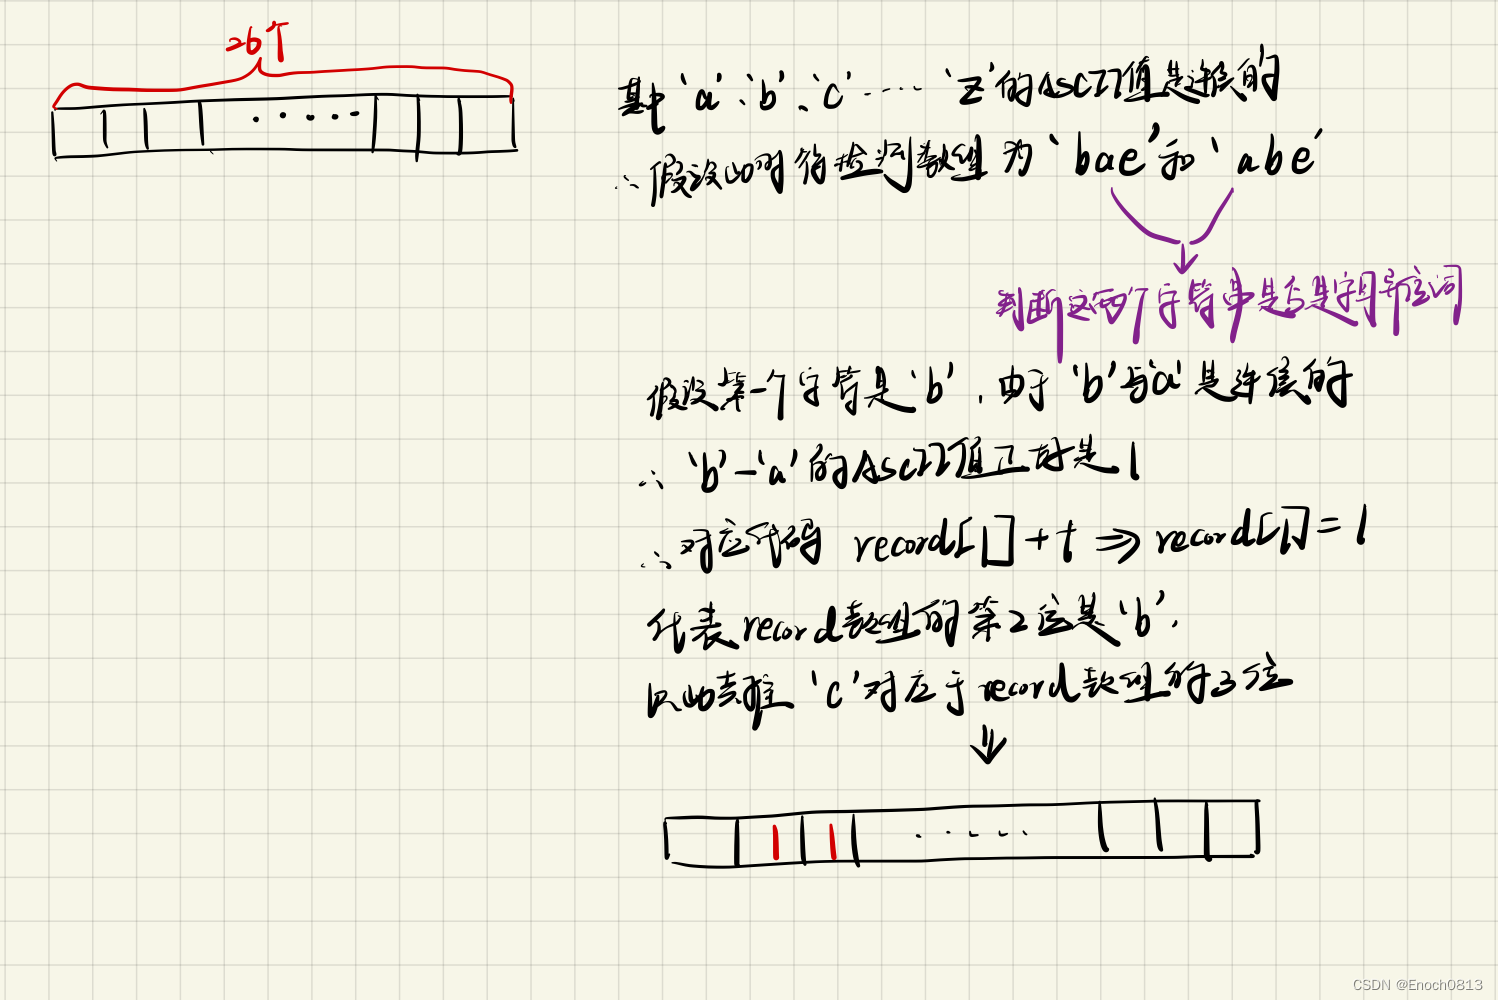 26个
其中'a'、'b'、'c'……'z'的ASCII值是连续的
∴假设此时待检测数组为'bae'和'abe'
判断这两个字符串是否是字母异位词
假设第一个字符是'b',由于'b'与'a'是连续的
∴'b'-'a'的ASCII值正好是1
∴对应代码 record[1]++ ⇒ record[1]=1
代表record数组的第2位是'b',
以此类推'c'对应于record数组的3位
CSDN @Enoch0813